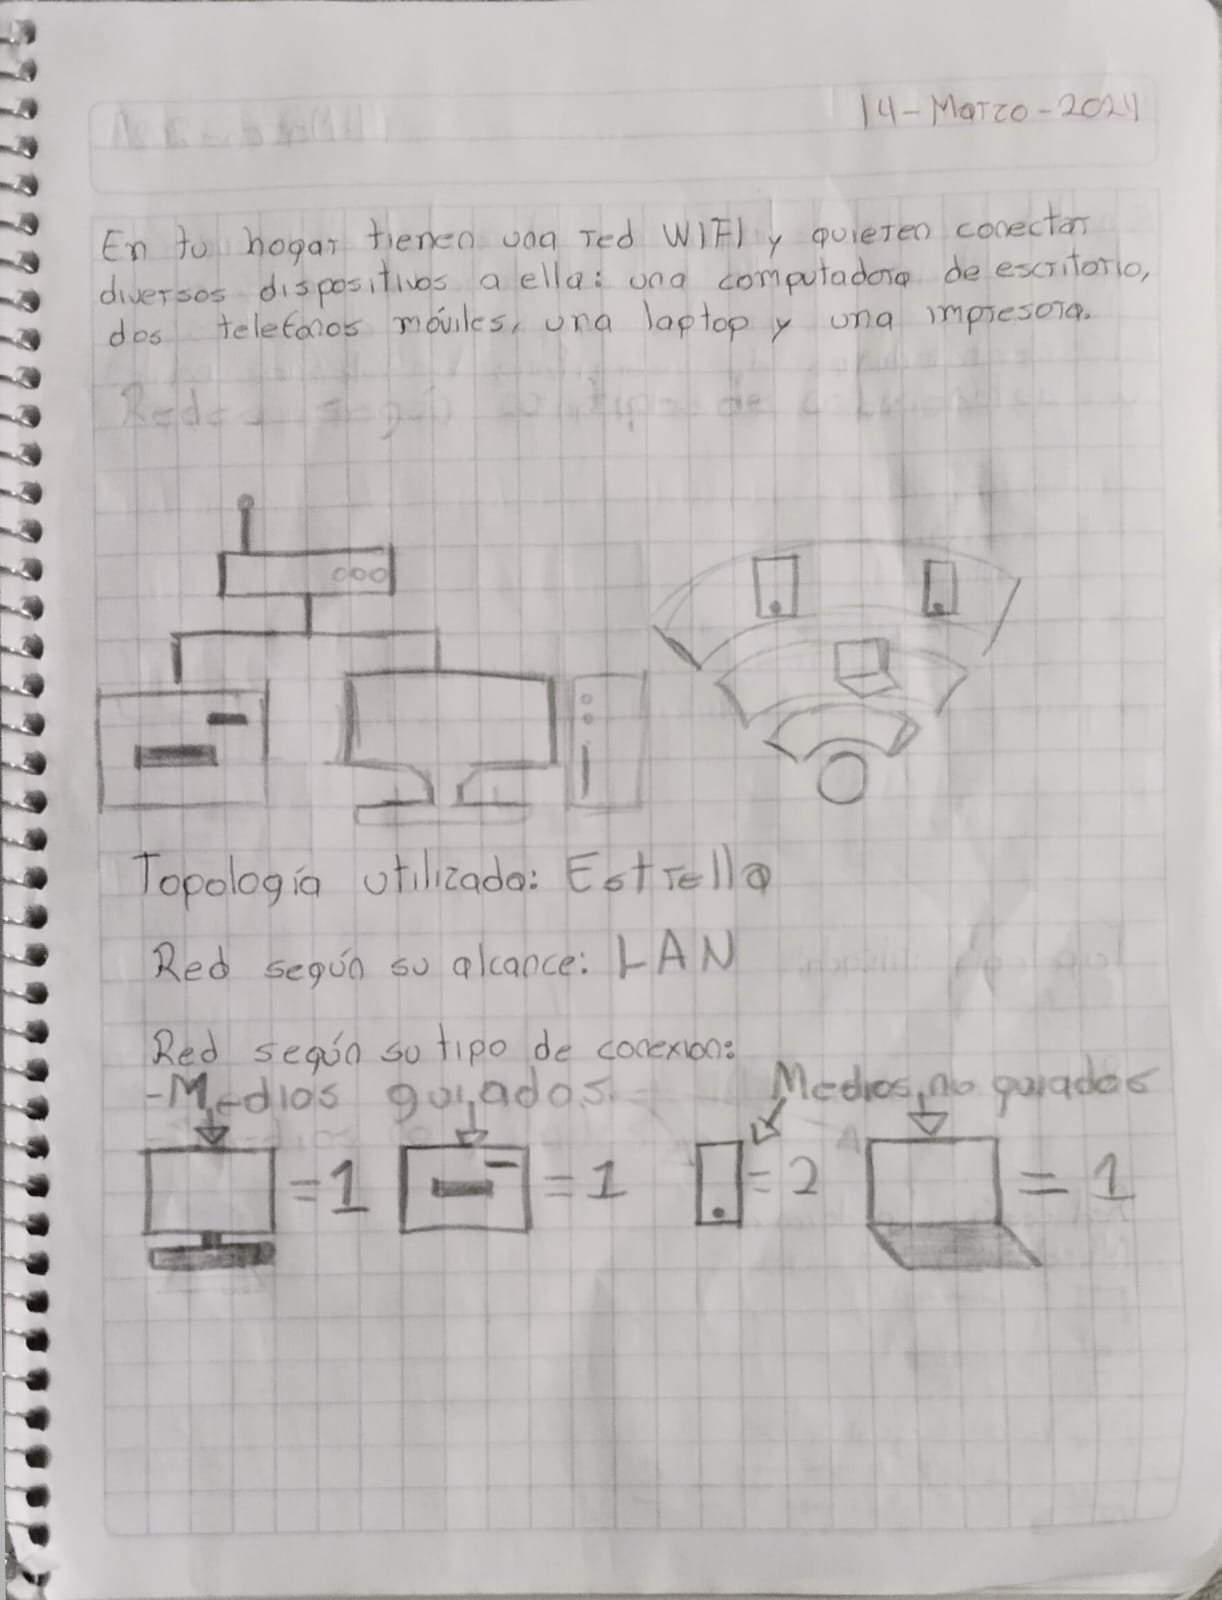 14-Marzo-2024
En tu hogar tienen una red WIFI y quieren conectar
diversos dispositivos a ella: una computadora de escritorio,
dos telefonos móviles, una laptop y una impresora.
Topología utilizada: Estrella
Red según su alcance: LAN
Red según su tipo de conexion:
-Medios guiados
Medios no guiados
=1 =1 =2 =1